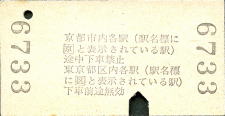 6733
京都市内各駅（駅名標に
囗京と表示されている駅）
途中下車禁止
東京都区内各駅（駅名標
に囗区と表示されている駅）
下車前途無効
6733